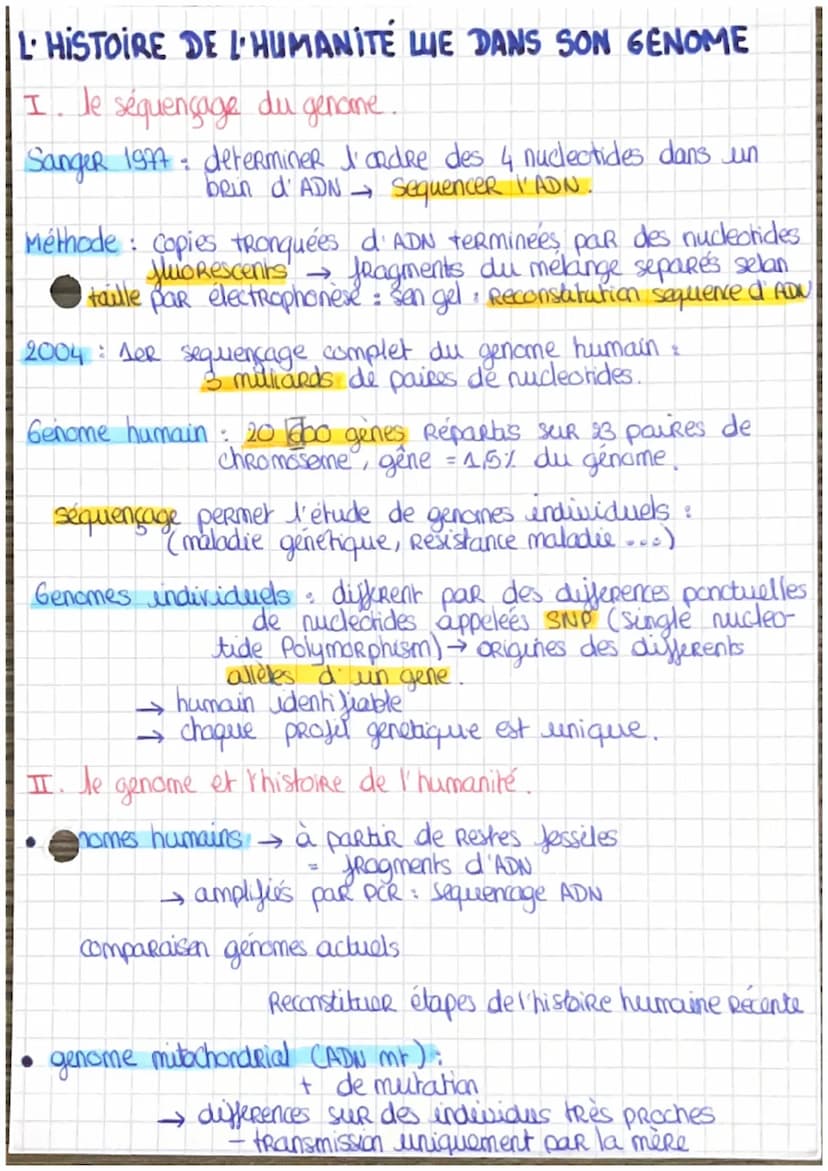 L'HISTOIRE DE L'HUMANITÉ LUE DANS SON GENOME
I. le séquençage du genome.
Sanger 1977 : determiner l'ordre des 4 nucleotides dans un
brin d'ADN → Sequencer l'ADN.
Méthode : Copies tronquées d'ADN terminées par des nucleotides
fluorescents → fragments du mélange separés selon
taille par électrophonèse : sen gel : Reconstitution sequence d'ADN
2004 : 1er sequençage complet du genome humain :
3 milliards de paires de nucleotides.
Genome humain : 20 000 gènes Répartis sur 23 paires de
chromoseme, gêne = 1,5% du génome.
séquençage permet l'étude de genomes individuels :
(maladie génétique, Résistance maladie ...)
Genomes individuels : different par des differences ponctuelles
de nucleotides appelées SNP (Single nucleo-
tide Polymorphism) → origines des differents
allèles d'un gene.
→ humain identifiable
→ chaque profil genetique est unique.
II. le genome et l'histoire de l'humanité.
• nomes humains → à partir de Restes fossiles
= fragments d'ADN
→ amplifiés par PCR : sequencage ADN
comparaison génomes actuels
Reconstituer étapes de l'histoire humaine Récente
• genome mitochondrial (ADN mt) :
+ de mutation
→ differences sur des individus très proches
- transmission uniquement par la mère